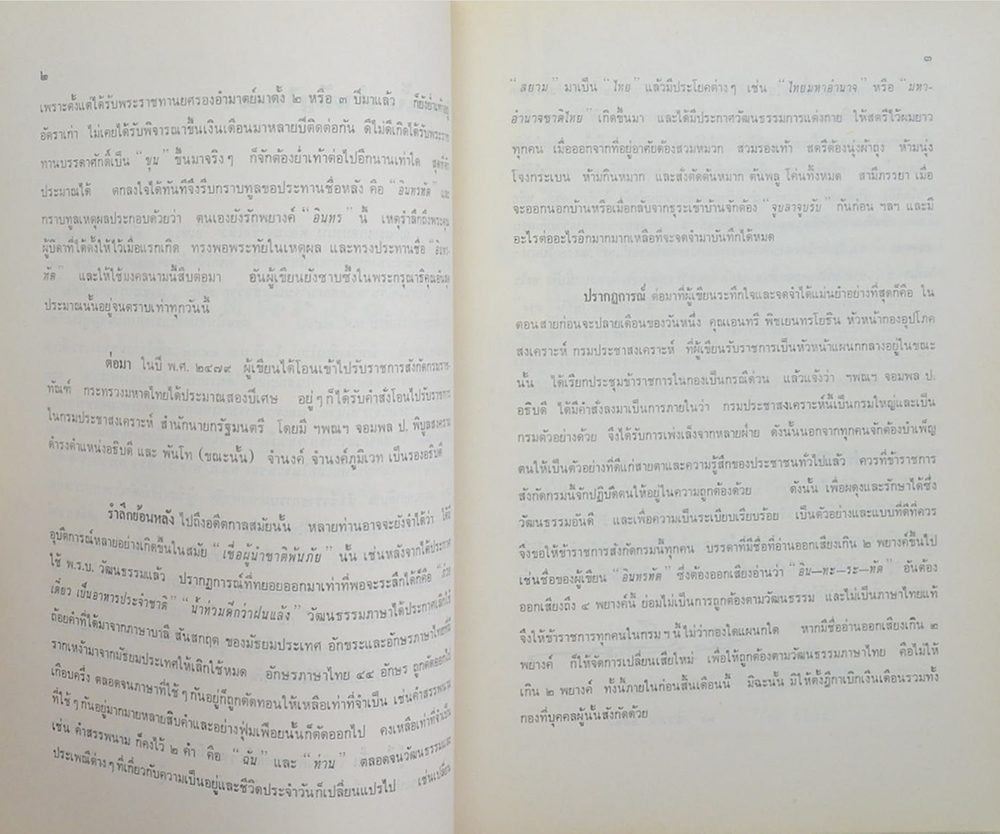 ๒
เพราะตั้งแต่ได้รับพระราชทานยศรองอำมาตย์มาตั้ง ๒ หรือ ๓ ปีมาแล้ว ก็ยังย่ำเท้าอยู่
อัตราเก่า ไม่เคยได้รับพิจารณาขึ้นเงินเดือนมาหลายปีติดต่อกัน ดีไม่ดีเกิดได้รับพระราช
ทานบรรดาศักดิ์เป็น “ขุน” ขึ้นมาจริงๆ ก็จักต้องย่ำเท้าต่อไปอีกนานเท่าใด สุดที่จัก
ประมาณได้ ตกลงใจได้ทันทีจึงรีบกราบทูลขอประทานชื่อหลัง คือ “อินทรทัต” และ
กราบทูลเหตุผลประกอบด้วยว่า ตนเองยังรักพยางค์ “อินทร” นี้ เหตุรำลึกถึงพระคุณ
ผู้บิดาที่ได้ตั้งให้ไว้เมื่อแรกเกิด ทรงพอพระทัยในเหตุผล และทรงประทานชื่อ “อินทร-
ทัต” และให้ใช้มงคลนามนี้สืบต่อมา อันผู้เขียนยังซาบซึ้งในพระกรุณาธิคุณอันสุด
ประมาณนั้นอยู่จนตราบเท่าทุกวันนี้
ต่อมา ในปี พ.ศ. ๒๔๗๙ ผู้เขียนได้โอนเข้าไปรับราชการสังกัดกรมราช-
ทัณฑ์ กระทรวงมหาดไทยได้ประมาณสองปีเศษ อยู่ๆก็ได้รับคำสั่งโอนไปรับราชการ
ในกรมประชาสงเคราะห์ สำนักนายกรัฐมนตรี โดยมี ฯพณฯ จอมพล ป. พิบูลสงคราม
ดำรงตำแหน่งอธิบดี และ พันโท (ขณะนั้น) จำนงค์ จำนงค์ภูมิเวท เป็นรองอธิบดี
รำลึกย้อนหลัง ไปถึงอดีตกาลสมัยนั้น หลายท่านอาจจะยังจำได้ว่า ได้มี
อุบัติการณ์หลายอย่างเกิดขึ้นในสมัย “เชื่อผู้นำชาติพ้นภัย” นั้น เช่นหลังจากได้ประกาศ
ใช้ พ.ร.บ. วัฒนธรรมแล้ว ปรากฏการณ์ที่ทยอยออกมาเท่าที่พอจะระลึกได้ก็คือ “ก๋วย
เตี๋ยว เป็นอาหารประจำชาติ” “น้ำท่วมดีกว่าฝนแล้ง” วัฒนธรรมภาษาได้ประกาศเลิกใช้
ถ้อยคำที่ได้มาจากภาษาบาลี สันสกฤต ของมัธยมประเทศ อักขระและอักษรภาษาไทยที่มี
รากเหง้ามาจากมัธยมประเทศให้เลิกใช้หมด อักษรภาษาไทย ๔๔ อักษร ถูกตัดออกไป
เกือบครึ่ง ตลอดจนภาษาที่ใช้ๆ กันอยู่ก็ถูกตัดทอนให้เหลือเท่าที่จำเป็น เช่นคำสรรพนาม
ที่ใช้ๆ กันอยู่มากมายหลายสิบคำและอย่างฟุ่มเฟือยนั้นก็ตัดออกไป คงเหลือเท่าที่จำเป็น
เช่น คำสรรพนาม ก็คงไว้ ๒ คำ คือ “ฉัน” และ “ท่าน” ตลอดจนวัฒนธรรมและ
ประเพณีต่างๆ ที่เกี่ยวกับความเป็นอยู่และชีวิตประจำวันก็เปลี่ยนแปรไป เช่นเปลี่ยน
๓
“สยาม” มาเป็น “ไทย” แล้วมีประโยคต่างๆ เช่น “ไทยมหาอำนาจ” หรือ “มหา-
อำนาจชาติไทย” เกิดขึ้นมา และได้มีประกาศวัฒนธรรมการแต่งกาย ให้สตรีไว้ผมยาว
ทุกคน เมื่อออกจากที่อยู่อาศัยต้องสวมหมวก สวมรองเท้า สตรีต้องนุ่งผ้าถุง ห้ามนุ่ง
โจงกระเบน ห้ามกินหมาก และสั่งตัดต้นหมาก ต้นพลู โค่นทิ้งหมด สามีภรรยา เมื่อ
จะออกนอกบ้านหรือเมื่อกลับจากธุระเข้าบ้านจักต้อง “จูบลาจูบรับ” กันก่อน ฯลฯ และมี
อะไรต่ออะไรอีกมากมากเหลือที่จะจดจำมาบันทึกได้หมด
ปรากฏการณ์ ต่อมาที่ผู้เขียนระทึกใจและจดจำได้แม่นยำอย่างที่สุดก็คือ ใน
ตอนสายก่อนจะปลายเดือนของวันหนึ่ง คุณเอนทรี พิชเยนทรโยธิน หัวหน้ากองอุปโภค
สงเคราะห์ กรมประชาสงเคราะห์ ที่ผู้เขียนรับราชการเป็นหัวหน้าแผนกกลางอยู่ในขณะ
นั้น ได้เรียกประชุมข้าราชการในกองเป็นกรณีด่วน แล้วแจ้งว่า ฯพณฯ จอมพล ป.
อธิบดี ได้มีคำสั่งลงมาเป็นการภายในว่า กรมประชาสงเคราะห์นี้เป็นกรมใหญ่และเป็น
กรมตัวอย่างด้วย จึงได้รับการเพ่งเล็งจากหลายฝ่าย ดังนั้นนอกจากทุกคนจักต้องบำเพ็ญ
ตนให้เป็นตัวอย่างที่ดีแก่สายตาและความรู้สึกของประชาชนทั่วไปแล้ว ควรที่ข้าราชการ
สังกัดกรมนี้จักปฏิบัติตนให้อยู่ในความถูกต้องด้วย ดังนั้น เพื่อผดุงและรักษาไว้ซึ่ง
วัฒนธรรมอันดี และเพื่อความเป็นระเบียบเรียบร้อย เป็นตัวอย่างและแบบที่ดีที่ควร
จึงขอให้ข้าราชการสังกัดกรมนี้ทุกคน บรรดาที่มีชื่อที่อ่านออกเสียงเกิน ๒ พยางค์ขึ้นไป
เช่นชื่อของผู้เขียน “อินทรทัต” ซึ่งต้องออกเสียงอ่านว่า “อิน—ทะ—ระ—ทัต” อันต้อง
ออกเสียงถึง ๔ พยางค์นี้ ย่อมไม่เป็นการถูกต้องตามวัฒนธรรม และไม่เป็นภาษาไทยแท้
จึงให้ข้าราชการทุกคนในกรมฯนี้ไม่ว่ากองใดแผนกใด หากมีชื่ออ่านออกเสียงเกิน ๒
พยางค์ ก็ให้จัดการเปลี่ยนเสียใหม่ เพื่อให้ถูกต้องตามวัฒนธรรมภาษาไทย คือไม่ให้
เกิน ๒ พยางค์ ทั้งนี้ภายในก่อนสิ้นเดือนนี้ มิฉะนั้น มิให้ตั้งฎีกาเบิกเงินเดือนรวมทั้ง
กองที่บุคคลผู้นั้นสังกัดด้วย